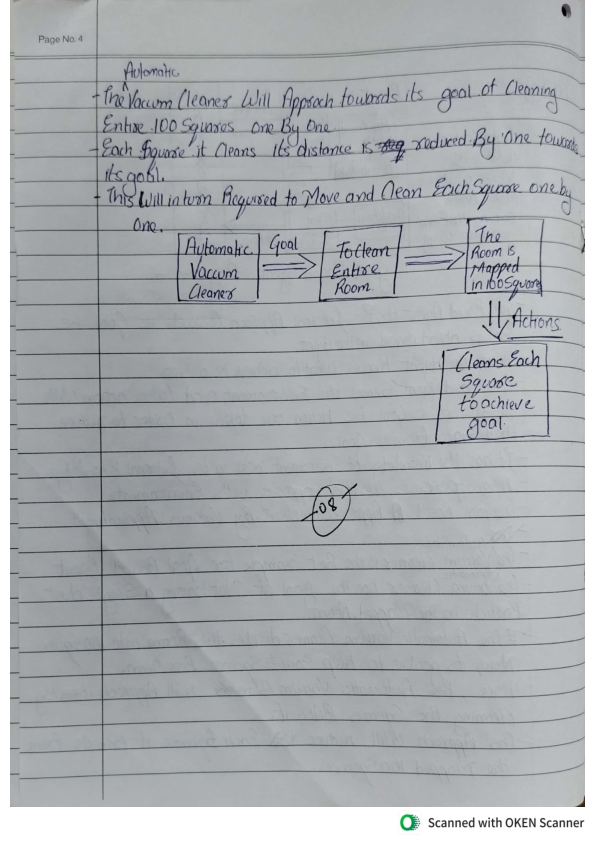 Page No. 4
Automatic
- The Vacuum Cleaner Will Approch towards its goal of Cleaning
Entire 100 Squares one By One
- Each Square it Cleans its distance is reduced By One towards
its goal.
- This Will in turn Required to Move and Clean Each Square one by
One.
Automatic
Vaccum
Cleaner
Goal
To Clean
Entire
Room.
The
Room is
Mapped
in 100 Square
Actions
Cleans Each
Square
to achieve
goal.
08
Scanned with OKEN Scanner